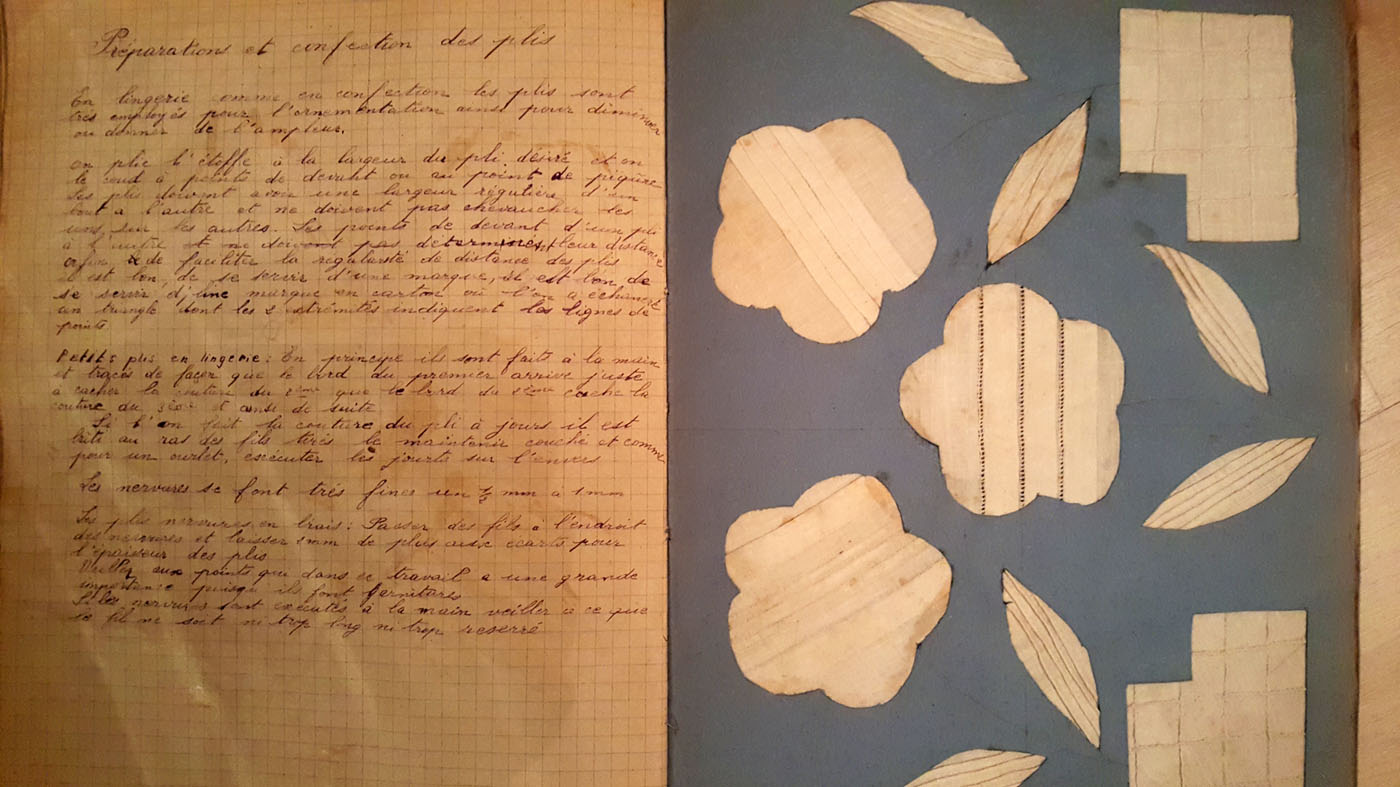 Préparations et confection des plis
En lingerie comme en confection les plis sont
très employés pour l'ornementation ainsi pour diminuer
ou donner de l'ampleur.
on plie l'étoffe à la largeur du pli désiré et on
le coud à points de devant ou au point de piqûre
Les plis doivent avoir une largeur régulière d'un
bout a l'autre et ne doivent pas chevaucher les
uns sur les autres. Les points de devant d'un pli
à l'autre et ne doivent pas déterminés, leur distance
de faciliter la régularité de distance des plis
il est bon, de se servir d'une marque, il est bon de
se servir d'une marque en carton où l'on a échancré
un triangle dont les 2 extrémités indiquent les lignes de
points
Petits plis en lingerie: En principe ils sont faits à la main
et tracés de façon que le bord du premier arrive juste
à cacher la couture du 2ème que le bord du 2ème cache la
couture du 3ème et ainsi de suite
Si l'on fait la couture du pli à jours il est
bâti au ras des fils tirés le maintenir couché et comme
pour un ourlet, exécuter les jours sur l'envers
Les nervures se font très fines un ½ mm à 1 mm
Les plis nervures en biais: Passer des fils à l'endroit
des nervures et laisser 1mm de plus aux écarts pour
l'épaisseur des plis
Veillez aux points qui dans ce travail a une grande
importance puisqu'ils font garnitures
Si les nervures sont exécutés à la main veiller a ce que
le fil ne soit ni trop long ni trop reserré